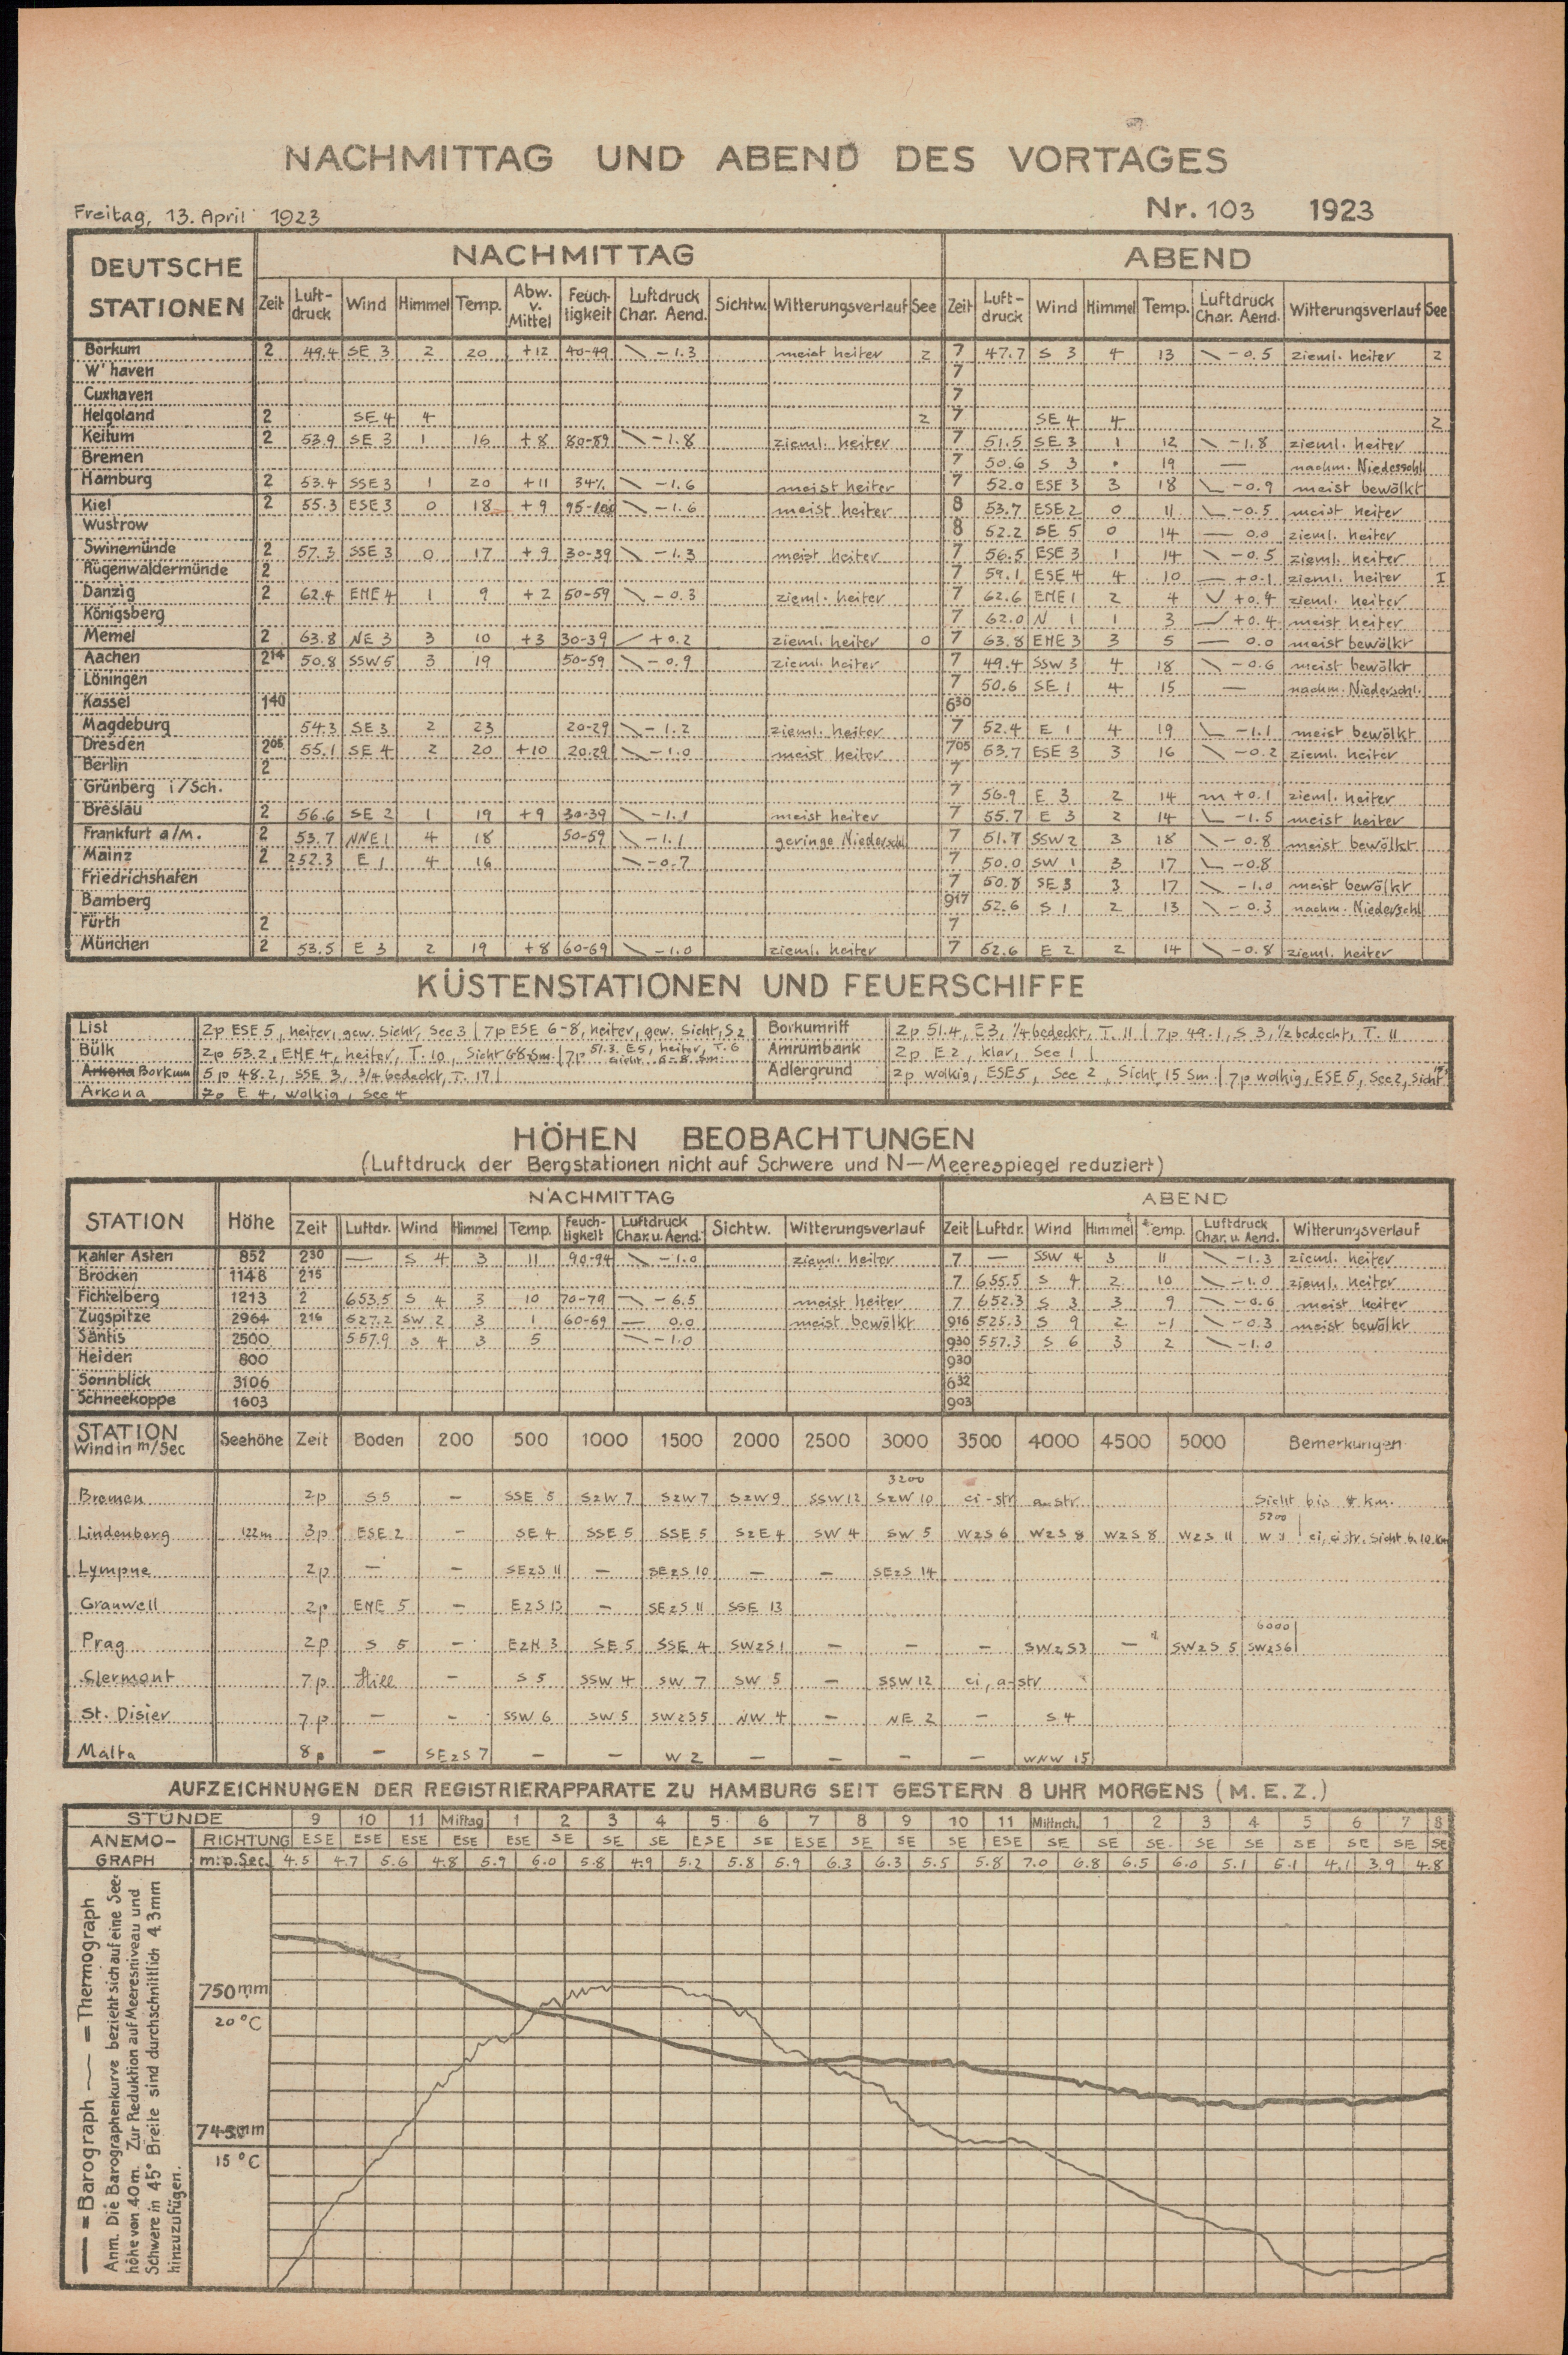 NACHMITTAG UND ABEND DES VORTAGES
Freitag, 13. April 1923 Nr. 103 1923
DEUTSCHE STATIONEN NACHMITTAG ABEND
Zeit Luft-druck Wind Himmel Temp. Abw. v. Mittel Feuch-tigkeit Luftdruck Char. Aend. Sichtw. Witterungsverlauf See Zeit Luft-druck Wind Himmel Temp. Luftdruck Char. Aend. Witterungsverlauf See
Borkum 2 49.4 SE 3 2 20 +12 40-49 \ -1.3 meist heiter 2 7 47.7 S 3 4 13 \ -0.5 zieml. heiter 2
W'haven 7
Cuxhaven 7
Helgoland 2 SE 4 4 2 7 SE 4 4 2
Keitum 2 53.9 SE 3 1 16 +8 80-89 \ -1.8 zieml. heiter 7 51.5 SE 3 1 12 \ -1.8 zieml. heiter
Bremen 7 50.6 S 3 • 19 — nachm. Niederschl
Hamburg 2 53.4 SSE 3 1 20 +11 34% \ -1.6 meist heiter 7 52.0 ESE 3 3 18 \ -0.9 meist bewölkt
Kiel 2 55.3 ESE 3 0 18 +9 95-100 \ -1.6 meist heiter 8 53.7 ESE 2 0 11 \ -0.5 meist heiter
Wustrow 8 52.2 SE 5 0 14 — 0.0 zieml. heiter
Swinemünde 2 57.3 SSE 3 0 17 +9 30-39 \ -1.3 meist heiter 7 56.5 ESE 3 1 14 \ -0.5 zieml. heiter
Rügenwaldermünde 2 7 59.1 ESE 4 4 10 — +0.1 zieml. heiter I
Danzig 2 62.4 ENE 4 1 9 +2 50-59 \ -0.3 zieml. heiter 7 62.6 ENE 1 2 4 V +0.4 zieml. heiter
Königsberg 7 62.0 N 1 1 3 +0.4 meist heiter
Memel 2 63.8 NE 3 3 10 +3 30-39 / +0.2 zieml. heiter 0 7 63.8 ENE 3 3 5 — 0.0 meist bewölkt
Aachen 2 14 50.8 SSW 5 3 19 50-59 \ -0.9 zieml. heiter 7 49.4 SSW 3 4 18 \ -0.6 meist bewölkt
Löningen 7 50.6 SE 1 4 15 — nachm. Niederschl.
Kassel 1 40 6 30
Magdeburg 54.3 SE 3 2 23 20-29 \ -1.2 zieml. heiter 7 52.4 E 1 4 19 \ -1.1 meist bewölkt
Dresden 2 05 55.1 SE 4 2 20 +10 20-29 \ -1.0 meist heiter 7 05 53.7 ESE 3 3 16 \ -0.2 zieml. heiter
Berlin 2 7
Grünberg i/Sch. 7 56.9 E 3 2 14 +0.1 zieml. heiter
Breslau 2 56.6 SE 2 1 19 +9 30-39 \ -1.1 meist heiter 7 55.7 E 3 2 14 \ -1.5 meist heiter
Frankfurt a/M. 2 53.7 NNE 1 4 18 50-59 \ -1.1 geringe Niederschl 7 51.7 SSW 2 3 18 \ -0.8 meist bewölkt
Mainz 2 252.3 E 1 4 16 \ -0.7 7 50.0 SW 1 3 17 \ -0.8
Friedrichshafen 7 50.8 SE 3 3 17 \ -1.0 meist bewölkt
Bamberg 9 17 52.6 S 1 2 13 \ -0.3 nachm. Niederschl
Fürth 2 7
München 2 53.5 E 3 2 19 +8 60-69 \ -1.0 zieml. heiter 7 52.6 E 2 2 14 \ -0.8 zieml. heiter
KÜSTENSTATIONEN UND FEUERSCHIFFE
List 2p ESE 5, heiter, gew. Sicht, See 3 | 7p ESE 6-8, heiter, gew. Sicht, S 2 Borkumriff 2p 51.4, E 3, 1/4 bedeckt, T. 11 | 7p 49.1, S 3, 1/2 bedeckt, T. 11
Bülk 2p 53.2, ENE 4, heiter, T. 10, Sicht 6-8 Sm. | 7p 51.3, E 5, heiter, T. 6 Sicht 6-8 Sm. Amrumbank 2p E 2, klar, See 1 |
Arkona Borkum 5p 48.2, SSE 3, 3/4 bedeckt, T. 17 | Adlergrund 2p wolkig, ESE 5, See 2, Sicht 15 Sm. | 7p wolkig, ESE 5, See 2, Sicht 15
Arkona 2p E 4, wolkig, See 4
HÖHEN BEOBACHTUNGEN
(Luftdruck der Bergstationen nicht auf Schwere und N—Meerespiegel reduziert)
STATION Höhe NACHMITTAG ABEND
Zeit Luftdr. Wind Himmel Temp. Feuch-tigkeit Luftdruck Char. u. Aend. Sichtw. Witterungsverlauf Zeit Luftdr. Wind Himmel Temp. Luftdruck Char. u. Aend. Witterungsverlauf
Kahler Asten 852 2 30 — S 4 3 11 90-94 \ -1.0 zieml. heiter 7 — SSW 4 3 11 \ -1.3 zieml. heiter
Brocken 1148 2 15 7 655.5 S 4 2 10 \ -1.0 zieml. heiter
Fichtelberg 1213 2 653.5 S 4 3 10 70-79 \ -6.5 meist heiter 7 652.3 S 3 3 9 \ -0.6 meist heiter
Zugspitze 2964 2 16 527.2 SW 2 3 1 60-69 — 0.0 meist bewölkt 9 16 525.3 S 9 2 -1 \ -0.3 meist bewölkt
Säntis 2500 557.9 S 4 3 5 \ -1.0 9 30 557.3 S 6 3 2 \ -1.0
Heiden 800 9 30
Sonnblick 3106 6 32
Schneekoppe 1603 9 03
STATION Wind in m/Sec Seehöhe Zeit Boden 200 500 1000 1500 2000 2500 3000 3500 4000 4500 5000 Bemerkungen
Bremen 2p S 5 — SSE 5 SzW 7 SzW 7 SzW 9 SSW 12 3200 SzW 10 ci-str a-str. Sicht bis 8 km.
Lindenberg 122m 3p ESE 2 — SE 4 SSE 5 SSE 5 SzE 4 SW 4 SW 5 WzS 6 WzS 8 WzS 8 WzS 11 5200 W 11 | ci, cistr. Sicht b. 10 km
Lympne 2p — — SEzS 11 — SEzS 10 — — SEzS 14
Granwell 2p ENE 5 — EzS 13 — SEzS 11 SSE 13
Prag 2p S 5 — EzN 3 SE 5 SSE 4 SWzS 1 — — — SWzS 3 — SWzS 5 6000 SWzS 6
Clermont 7p Still — S 5 SSW 4 SW 7 SW 5 — SSW 12 ci, a-str
St. Disier 7p — — SSW 6 SW 5 SWzS 5 NW 4 — NE 2 — S 4
Malta 8p — SEzS 7 — — W 2 — — — — WNW 15
AUFZEICHNUNGEN DER REGISTRIERAPPARATE ZU HAMBURG SEIT GESTERN 8 UHR MORGENS (M.E.Z.)
STUNDE 9 10 11 Mittag 1 2 3 4 5 6 7 8 9 10 11 Mittnch. 1 2 3 4 5 6 7 8
ANEMO-GRAPH RICHTUNG ESE ESE ESE ESE ESE SE SE SE ESE SE ESE SE SE SE ESE SE SE SE SE SE SE SE SE SE
m:p.Sec. 4.5 4.7 5.6 4.8 5.9 6.0 5.8 4.9 5.2 5.8 5.9 6.3 6.3 5.5 5.8 7.0 6.8 6.5 6.0 5.1 5.1 4.1 3.9 4.8
750 mm
20 °C
745 mm
15 °C
— = Barograph — = Thermograph
Anm. Die Barographenkurve bezieht sich auf eine See-
höhe von 40 m. Zur Reduktion auf Meeresniveau und
Schwere in 45° Breite sind durchschnittlich 4.3 mm
hinzuzufügen.